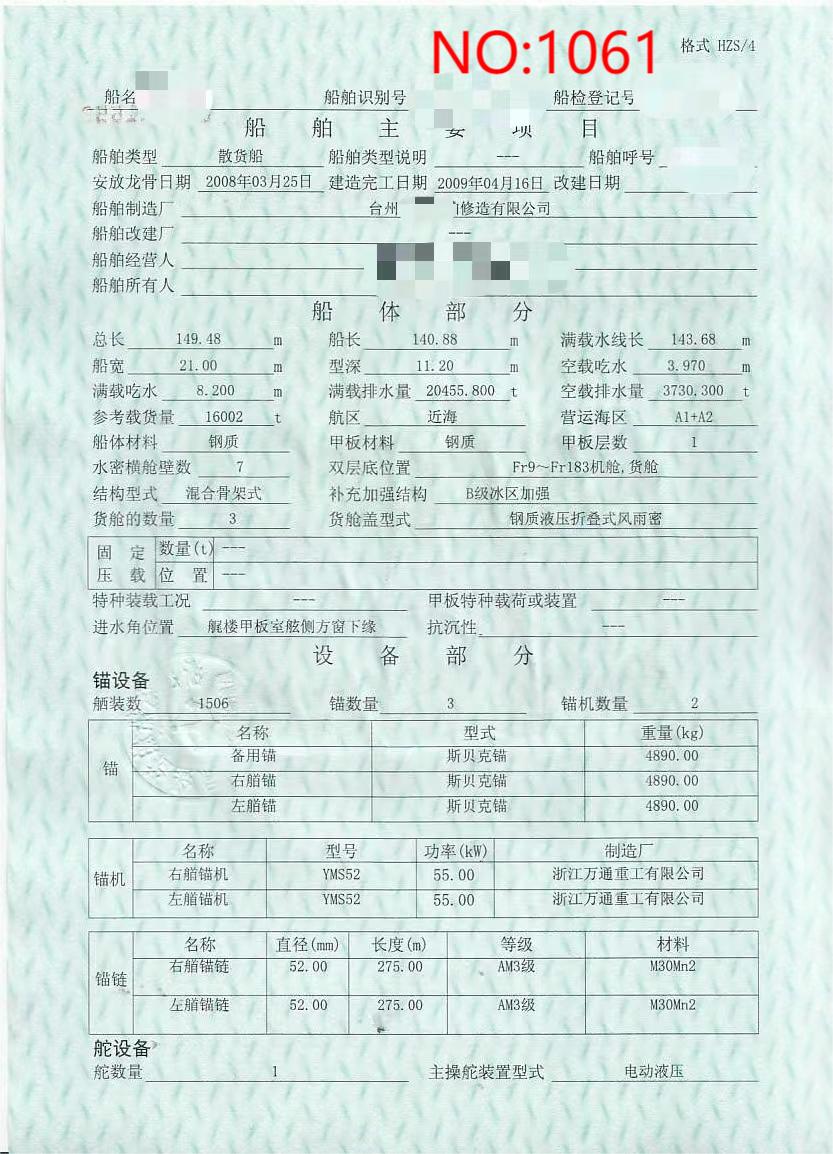 NO:1061 格式 HZS/4
船名 船舶识别号 船检登记号
船舶主要项目
船舶类型 散货船 船舶类型说明 --- 船舶呼号
安放龙骨日期 2008年03月25日 建造完工日期 2009年04月16日 改建日期
船舶制造厂 台州 修造有限公司
船舶改建厂 ---
船舶经营人
船舶所有人
船体部分
总长 149.48 m 船长 140.88 m 满载水线长 143.68 m
船宽 21.00 m 型深 11.20 m 空载吃水 3.970 m
满载吃水 8.200 m 满载排水量 20455.800 t 空载排水量 3730.300 t
参考载货量 16002 t 航区 近海 营运海区 A1+A2
船体材料 钢质 甲板材料 钢质 甲板层数 1
水密横舱壁数 7 双层底位置 Fr9~Fr183机舱,货舱
结构型式 混合骨架式 补充加强结构 B级冰区加强
货舱的数量 3 货舱盖型式 钢质液压折叠式风雨密
固定 数量(t) ---
压载 位置 ---
特种装载工况 --- 甲板特种载荷或装置 ---
进水角位置 艉楼甲板室舷侧方窗下缘 抗沉性 ---
设备部分
锚设备
舾装数 1506 锚数量 3 锚机数量 2
名称 型式 重量(kg)
备用锚 斯贝克锚 4890.00
锚 右艏锚 斯贝克锚 4890.00
左艏锚 斯贝克锚 4890.00
名称 型号 功率(kW) 制造厂
锚机 右艏锚机 YMS52 55.00 浙江万通重工有限公司
左艏锚机 YMS52 55.00 浙江万通重工有限公司
名称 直径(mm) 长度(m) 等级 材料
锚链 右艏锚链 52.00 275.00 AM3级 M30Mn2
左艏锚链 52.00 275.00 AM3级 M30Mn2
舵设备
舵数量 1 主操舵装置型式 电动液压